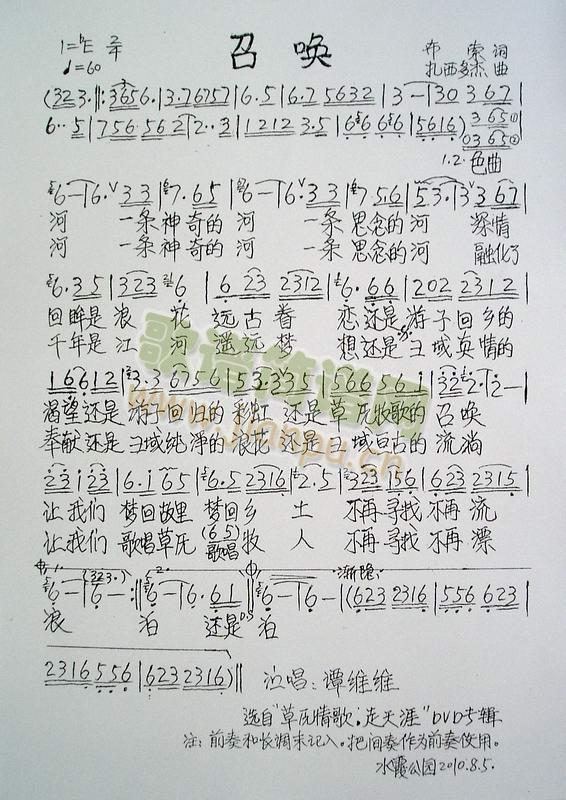 召唤
1=♭E 2/4
♩=60
布索 词
扎西多杰 曲
(323.‖:3656.|3.76757|6.5|6.75632|3—|30367|
6..5|756.562|2..3|12123.5|6666|5616)365①
0365②
1.2.色曲
6—|6.ˇ33|7.65|6—|6.ˇ33|75.6|53.|3ˇ367|
河 一条神奇的 河 一条思念的河 深情
河 一条神奇的 河 一条思念的河 融化了
6.35|3236|623 2312|6.66|202 2312|
回眸是浪花 远古眷 恋还是游子回乡的
千年是江河 遥远梦 想还是 域真情的
16612|3.36756|53.335|566561|322.|2—|
渴望还是游子回归的彩虹 还是草厡牧歌的 召唤
奉献还是 域纯净的浪花 还是 域亘古的 流淌
23123|6.165|6.52316|2.5|32356|6232315|
让我们 梦回故里 梦回乡 土 不再寻找 不再 流
让我们 歌唱草厡 歌唱牧 人 不再寻找 不再 漂
(65)
1. (323.) 2. 渐隐
6—|6—:‖6—|6.61‖6—|6—|(6232316|556623|
浪 泊 还是 泊
2316556|6232316)‖
演唱:谭维维
选自"草厡情歌·走天涯"DVD专辑
注:前奏和长调未记入。把间奏作为前奏使用。
水霞公园2010.8.5.
歌谱简谱网
www.jianpu.cn